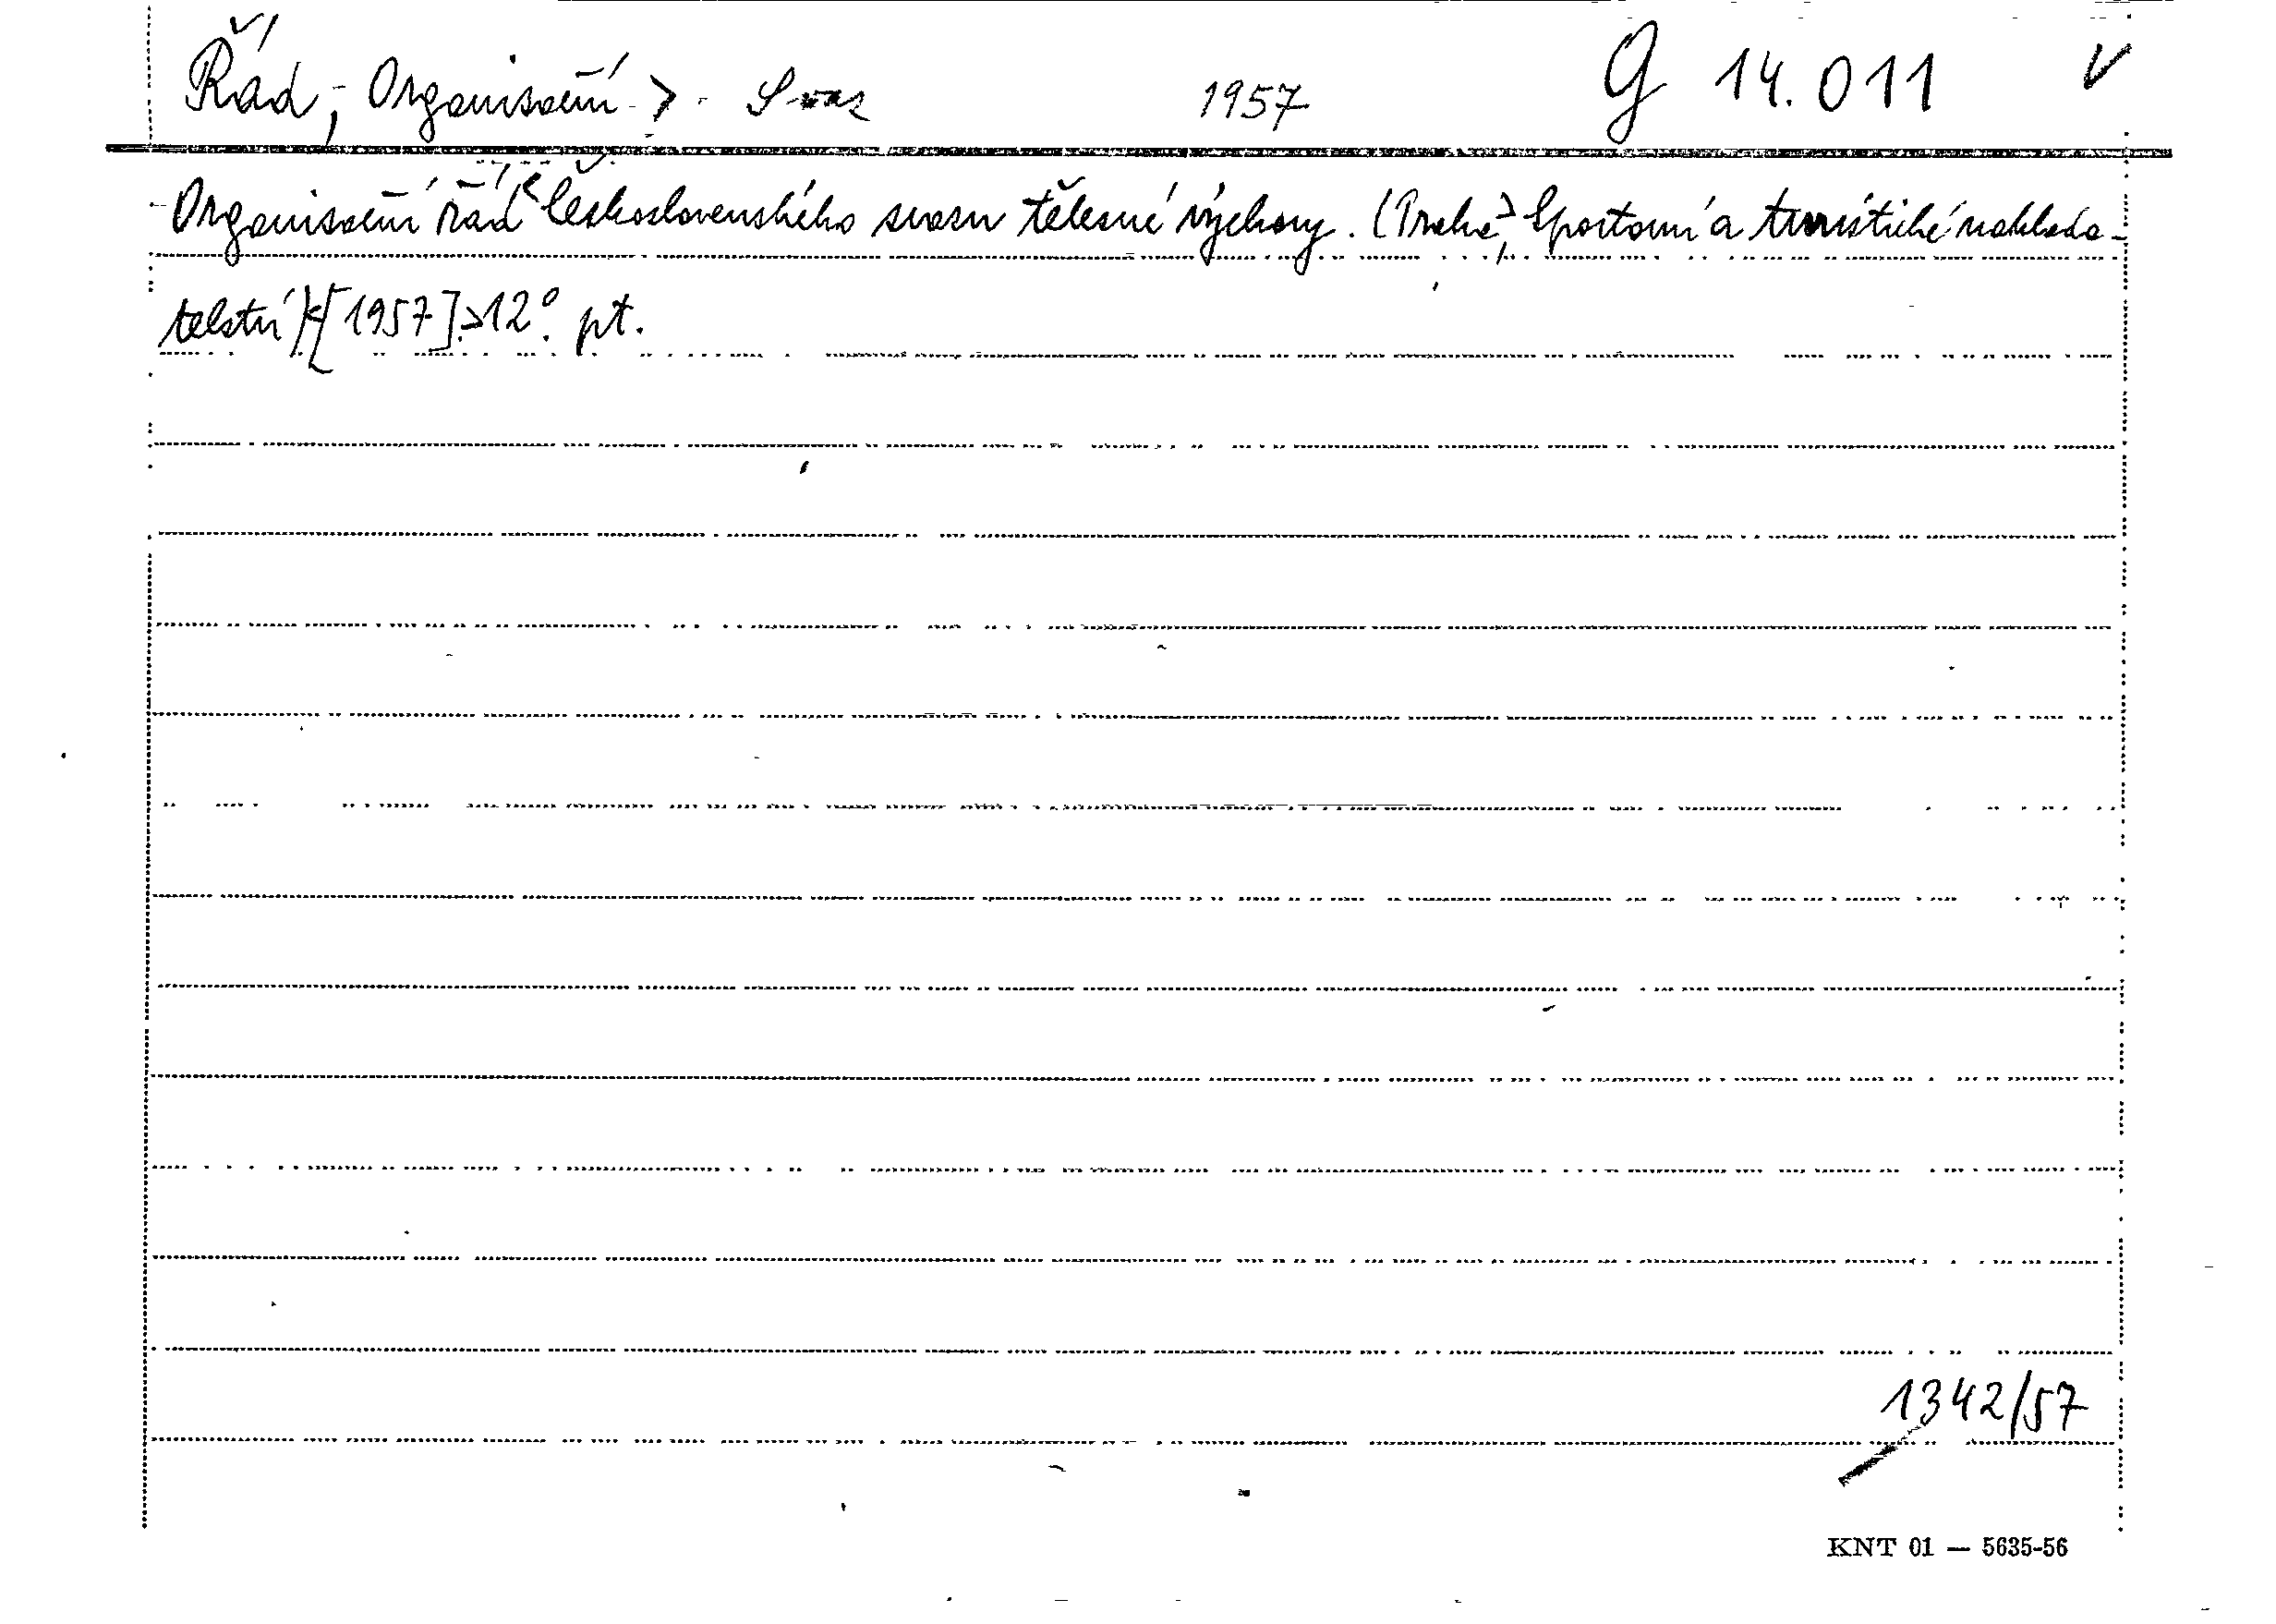 Řád, Organisační > - Svaz 1957 G 14.011 V
Organisační řád Československého svazu tělesné výchovy. (Praha, Sportovní a turistické naklada-
telství) [1957]. 12°. pt.
1342/57
KNT 01 — 5635-56